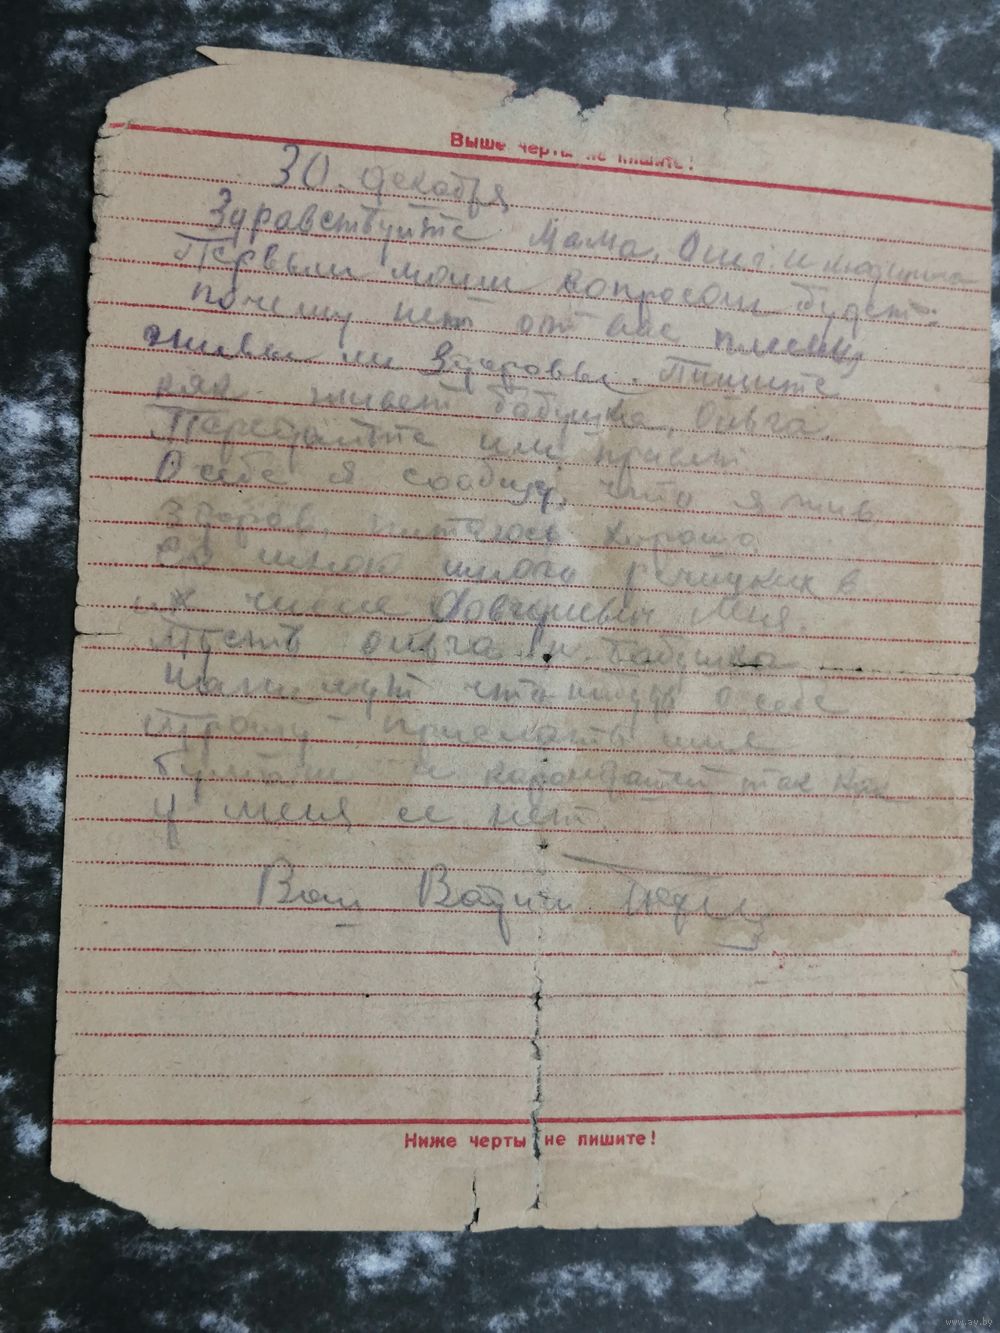 Выше черты не пишите!
30. декабря
Здравствуйте Мама, и
Первым моим вопросом будет:
почему нет от вас
живы ли Здоровы. Пишите
как живет бабушка, Ольга.
Передайте им привет
О себе я сообщу, что я жив,
Здоров, питаюсь хорошо
Со мною много речицких в
их числе меня.
Пусть Ольга и бабушка
напишут что нибудь о себе
Прошу прислать мне
бумаги и карандашей так как
у меня ее нет.
Ваш Вадим
Ниже черты не пишите!
www.ay.by